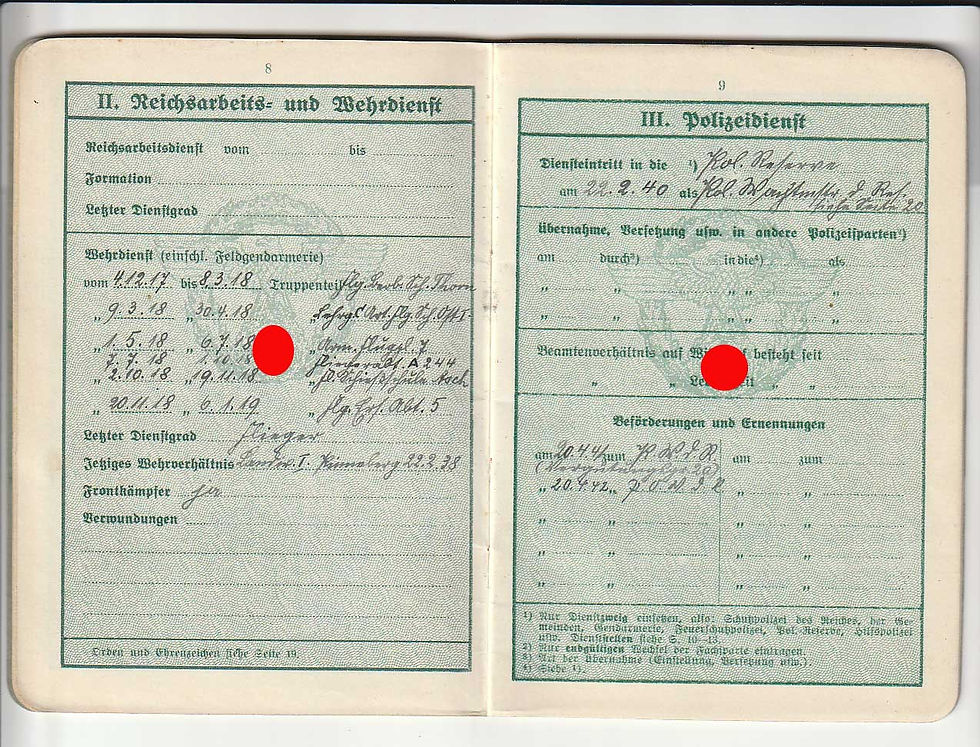 8
II. Reichsarbeits- und Wehrdienst
Reichsarbeitsdienst vom bis
Formation
Letzter Dienstgrad
Wehrdienst (einschl. Feldgendarmerie)
vom 4.12.17 bis 8.3.18 Truppenteil Flg. Beob. Sch. Thorn
„ 9.3.18 „ 30.4.18 „ Lehrgs. Art. Flg. Sch. Ost I
„ 1.5.18 „ 6.7.18 „ Arm. Flugp. 7
7.7.18 1.10.18 Fliegerabt. A 244
„ 2.10.18 „ 19.11.18 „ Fl. Schießschule Asch
„ 20.11.18 „ 6.1.19 „ Flg. Ers. Abt. 5
Letzter Dienstgrad Flieger
Jetziges Wehrverhältnis Landw. I. Pinneberg 22.2.38
Frontkämpfer ja
Verwundungen
Orden und Ehrenzeichen siehe Seite 19.
9
III. Polizeidienst
Diensteintritt in die ¹) Pol. Reserve
am 22.2.40 als Pol. Wachtmstr. d. Res.
siehe Seite 20
Übernahme, Versetzung usw. in andere Polizeisparten¹)
am durch²) in die⁴) als
„ „ „ „
„ „ „ „
Beamtenverhältnis auf besteht seit
„ „ „ „
Beförderungen und Ernennungen
am 20.4.41 zum R.W.D.R am zum
(Vergütungsgr. 20)
„ 20.4.42 „ „ „
„ „ „ „
„ „ „ „
„ „ „ „
¹) Nur Dienstzweig einsetzen, also: Schutzpolizei des Reiches, der Ge-
meinden, Gendarmerie, Feuerschutzpolizei, Pol. Reserve, Hilfspolizei
usw. Dienststellen siehe S. 10–13.
²) Nur endgültigen Wechsel der Fachsparte eintragen.
³) Art der Übernahme (Einstellung, Versetzung usw.).
⁴) Siehe ¹).